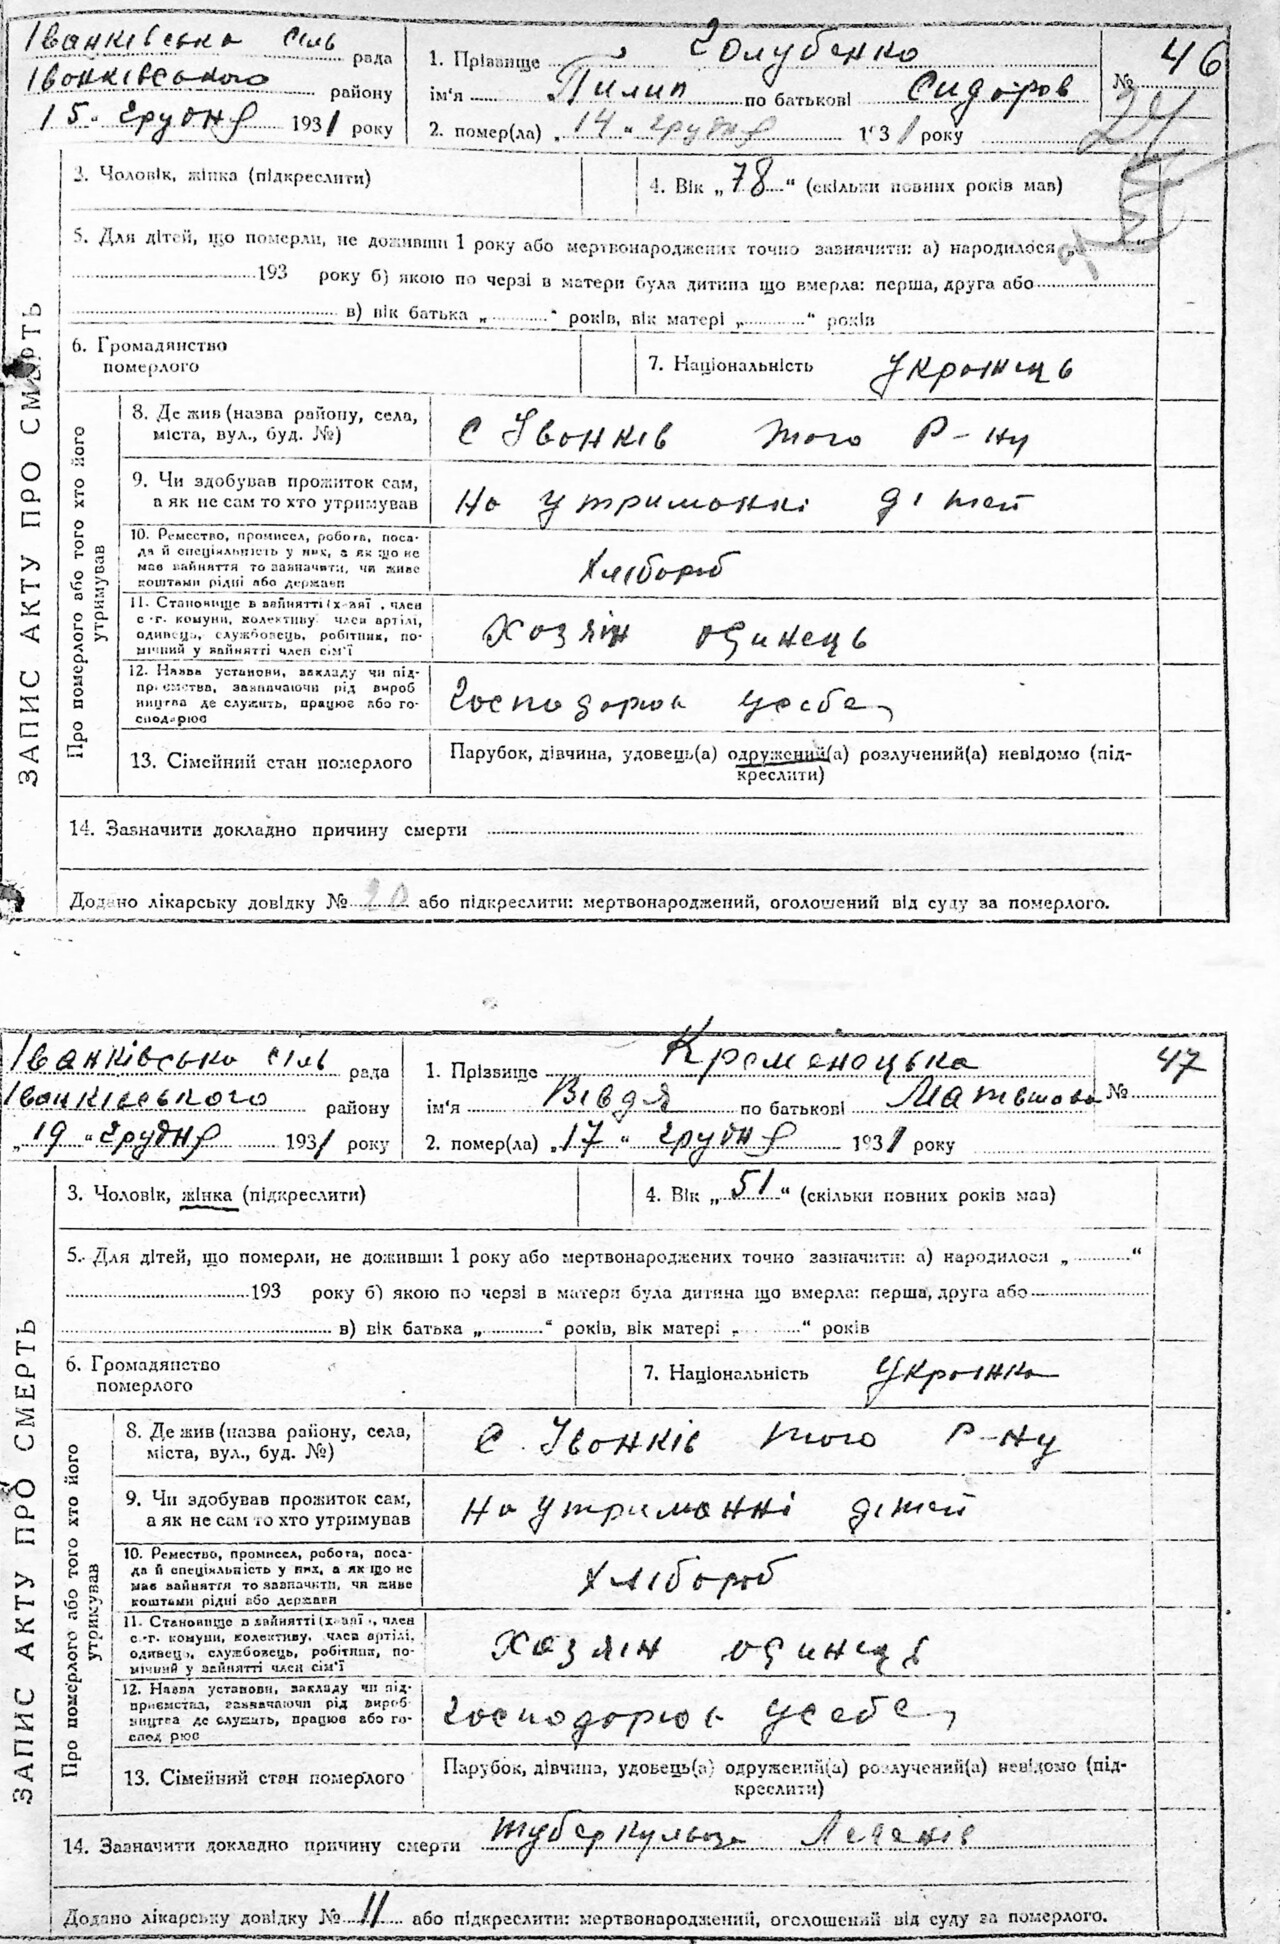 Іванківська сіль рада
Іванківського району
15 „ Грудня 1931 року
1. Прізвище Голубенко
ім'я Пилип по батькові Сидоров
2. помер(ла) „ 14 " грудня 1931 року
№ 46
24
3. Чоловік, жінка (підкреслити)
4. Вік „ 78 " (скільки повних років мав)
5. Для дітей, що померли, не доживши 1 року або мертвонароджених точно зазначити: а) народилося „ "
193 року б) якою по черзі в матери була дитина що вмерла: перша, друга або
в) вік батька „ " років, вік матері „ " років
6. Громадянство
померлого
7. Національність Українець
ЗАПИС АКТУ ПРО СМЕРТЬ
Про померлого або того хто його
утримував
8. Де жив (назва району, села,
міста, вул., буд. №)
С Іванків того Р-ну
9. Чи здобував прожиток сам,
а як не сам то хто утримував
На утриманні дітей
10. Ремество, промисел, робота, поса-
да й спеціяльність у них, а як що не
має зайняття то зазначити, чи живе
коштами рідні або держави
Хлібороб
11. Становище в зайнятті (х-зяї , член
с -г. комуни, колективу, член артілі,
одинець, службовець, робітник, по-
мічний у зайнятті член сім'ї
Хозяін одинець
12. Назва установи, закладу чи під-
приємства, зазначаючи рід вироб
ництва де служить, працює або го-
сподарює
Господарює усебе
13. Сімейний стан померлого
Парубок, дівчина, удовець(а) одружений(а) розлучений(а) невідомо (під-
креслити)
14. Зазначити докладно причину смерти
Додано лікарську довідку № 20 або підкреслити: мертвонароджений, оголошений від суду за померлого.
Іванківська сіль рада
Іванківського району
„ 19 " Грудня 1931 року
1. Прізвище Кременецька
ім'я Вівдя по батькові Матвійова
2. помер(ла) „ 17 " Грудня 1931 року
№ 47
3. Чоловік, жінка (підкреслити)
4. Вік „ 51 " (скільки повних років маз)
5. Для дітей, що померли, не доживши 1 року або мертвонароджених точно зазначити: а) народилося „ "
193 року б) якою по черзі в матери була дитина що вмерла: перша, друга або
в) вік батька „ " років, вік матері „ " років
6. Громадянство
померлого
7. Національність Українка
ЗАПИС АКТУ ПРО СМЕРТЬ
Про померлого або того хто його
утримував
8. Де жив (назва району, села,
міста, вул., буд. №)
С. Іванків того Р-ну
9. Чи здобував прожиток сам,
а як не сам то хто утримував
На утриманні дітей
10. Ремество, промисел, робота, поса-
да й спеціяльність у них, а як що не
має зайняття то зазначити, чи живе
коштами рідні або держави
Хлібороб
11. Становище в зайнятті (х-зяї , член
с.-г. комуни, колективу, член артілі,
одинець, службовець, робітник, по-
мічний у зайнятті член сім'ї
Хозяін одинець
12. Назва установи, закладу чи під-
приємства, зазначаючи рід вироб
ництва де служить, працює або го-
спод рює
Господарює усебе
13. Сімейний стан померлого
Парубок, дівчина, удовець(а) одружений(а) розлучений(а) невідомо (під-
креслити)
14. Зазначити докладно причину смерти туберкульоза Легенів
Додано лікарську довідку № 11 або підкреслити: мертвонароджений, оголошений від суду за померлого.